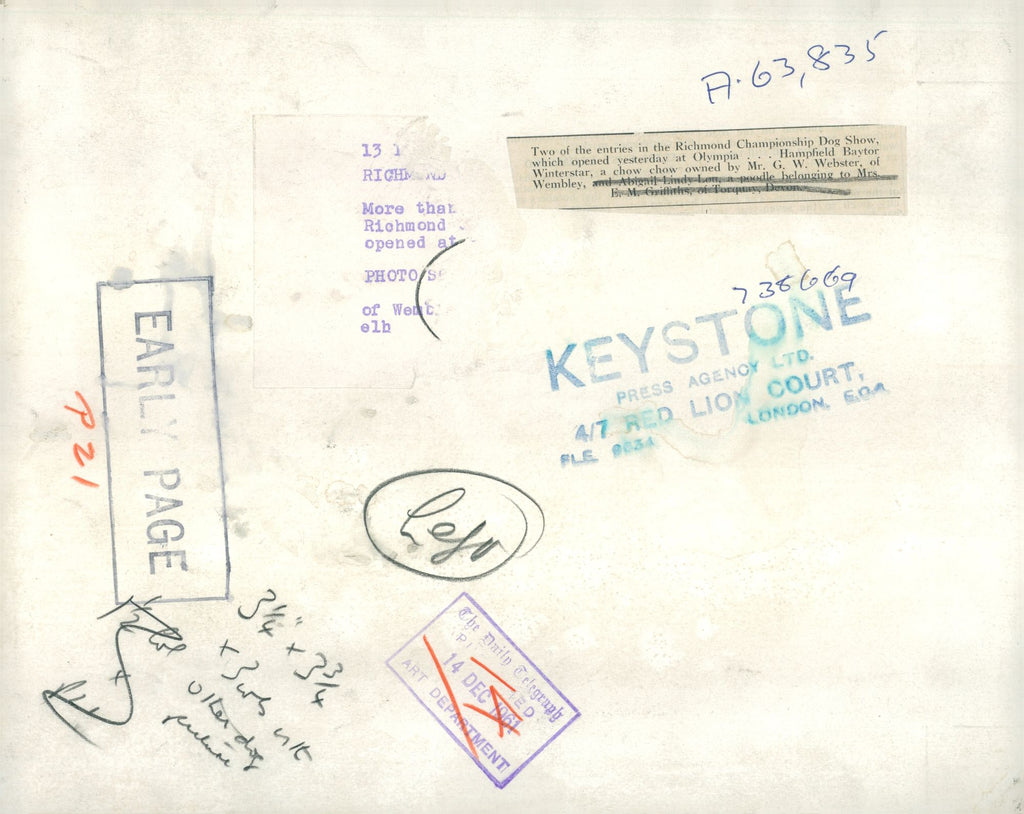 A.63,835
Two of the entries in the Richmond Championship Dog Show,
which opened yesterday at Olympia . . . Hampfield Baytor
Winterstar, a chow chow owned by Mr. G. W. Webster, of
Wembley, and Abigail Lindy Lou, a poodle belonging to Mrs.
E. M. Griffiths, of Torquay, Devon.
13
RICHMOND
More than
Richmond
opened at
PHOTO
of Wemb
elh
738669
KEYSTONE
PRESS AGENCY LTD.
4/7 RED LION COURT,
LONDON, E.C.4
FLE. 9634
EARLY PAGE
P21
3 1/4" + 3 3/4
+ 3
other dog
The Daily Telegraph
14 DEC 1961
ART DEPARTMENT